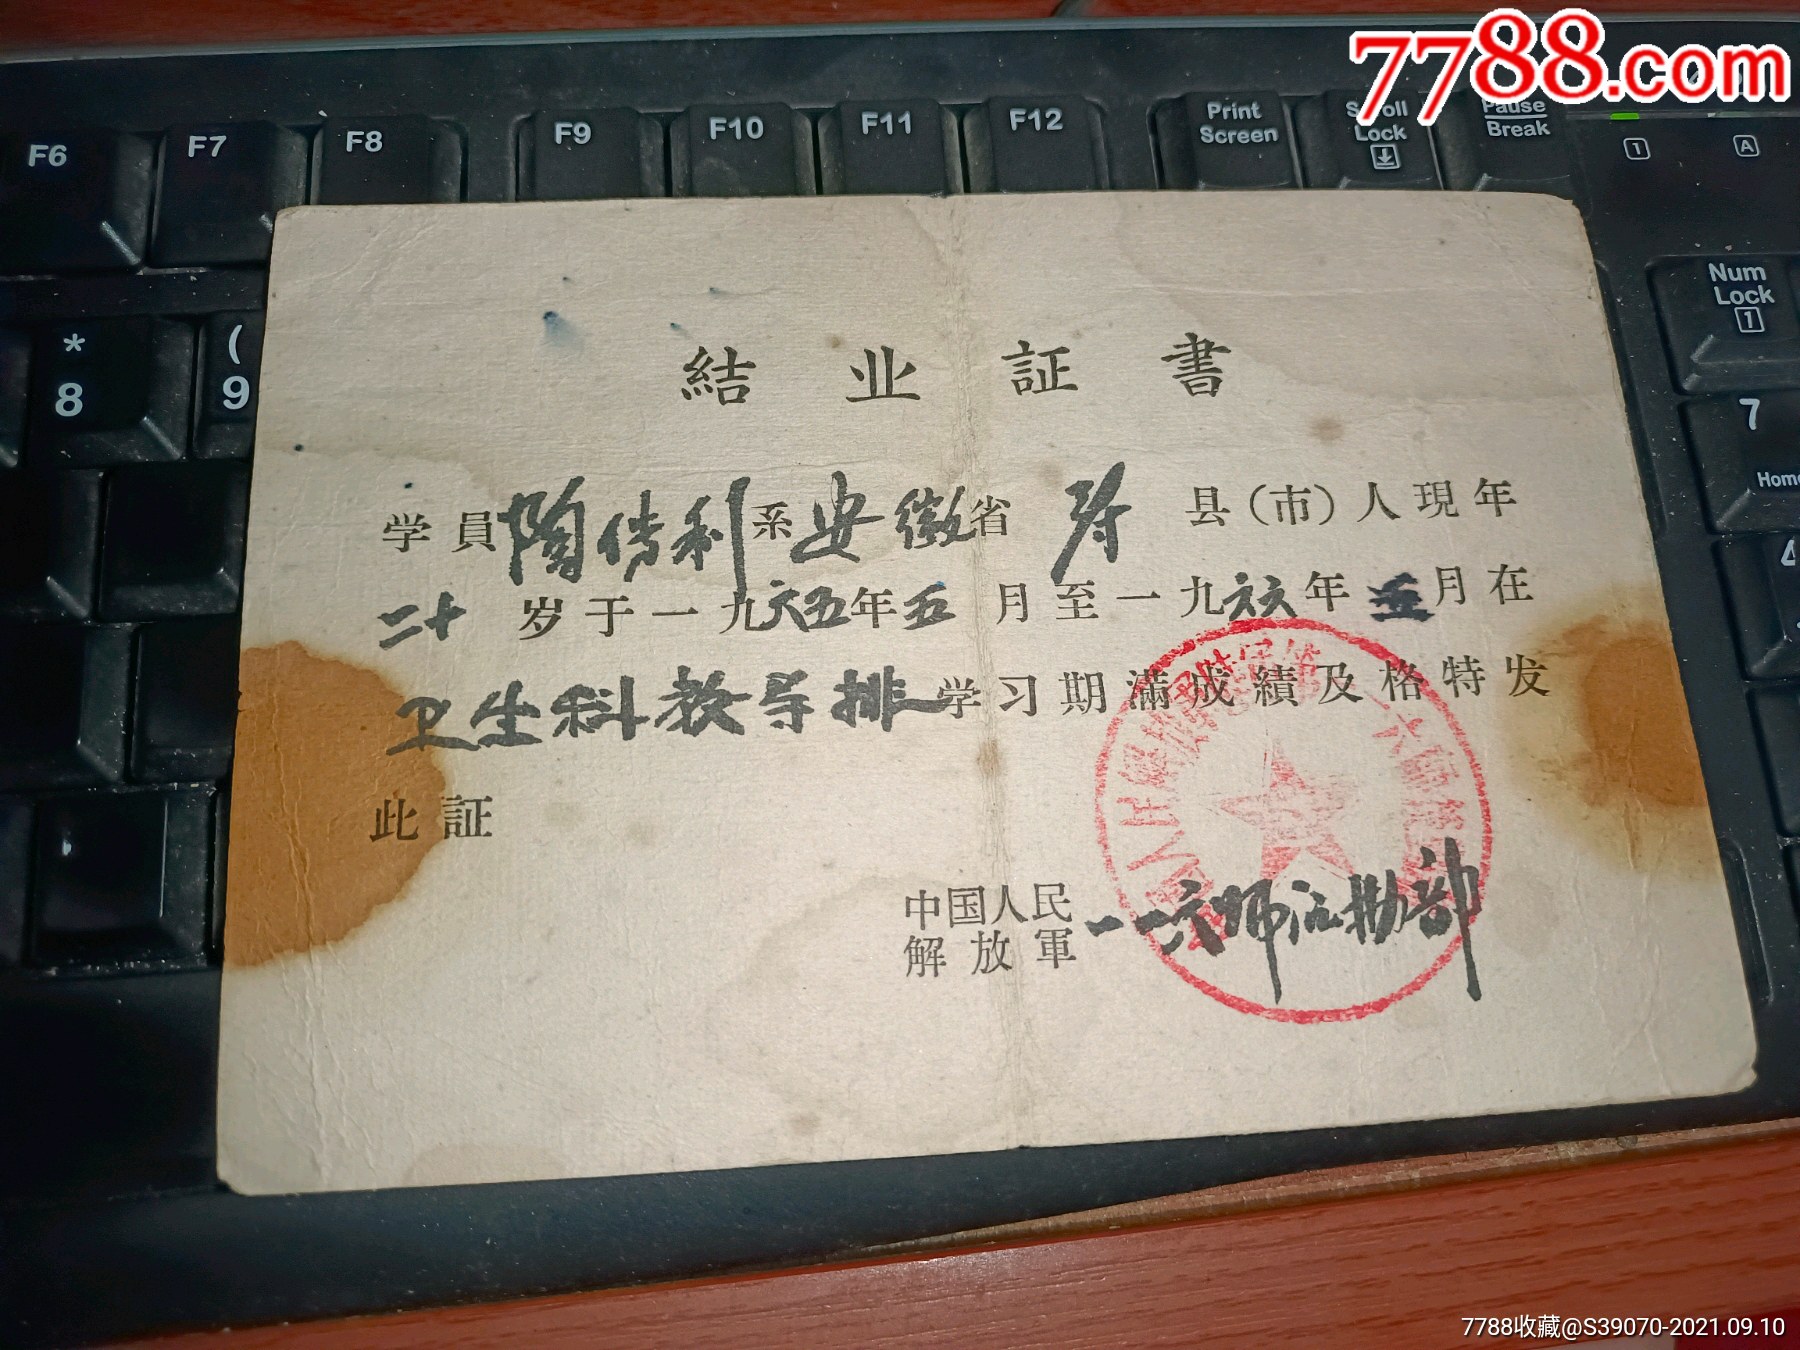 7788.com
F6 F7 F8 F9 F10 F11 F12 Print Screen Scroll Lock Pause Break
1 A
Num Lock 1
* 8 ( 9
7 Home
4
結业証書
学員陶傳利系安徽省寿县(市)人現年
二十岁于一九六五年五月至一九六六年五月在
卫生科教导排学习期滿成績及格特发
此証
中国人民
解放軍
一一六师后勤部
7788收藏@S39070-2021.09.10